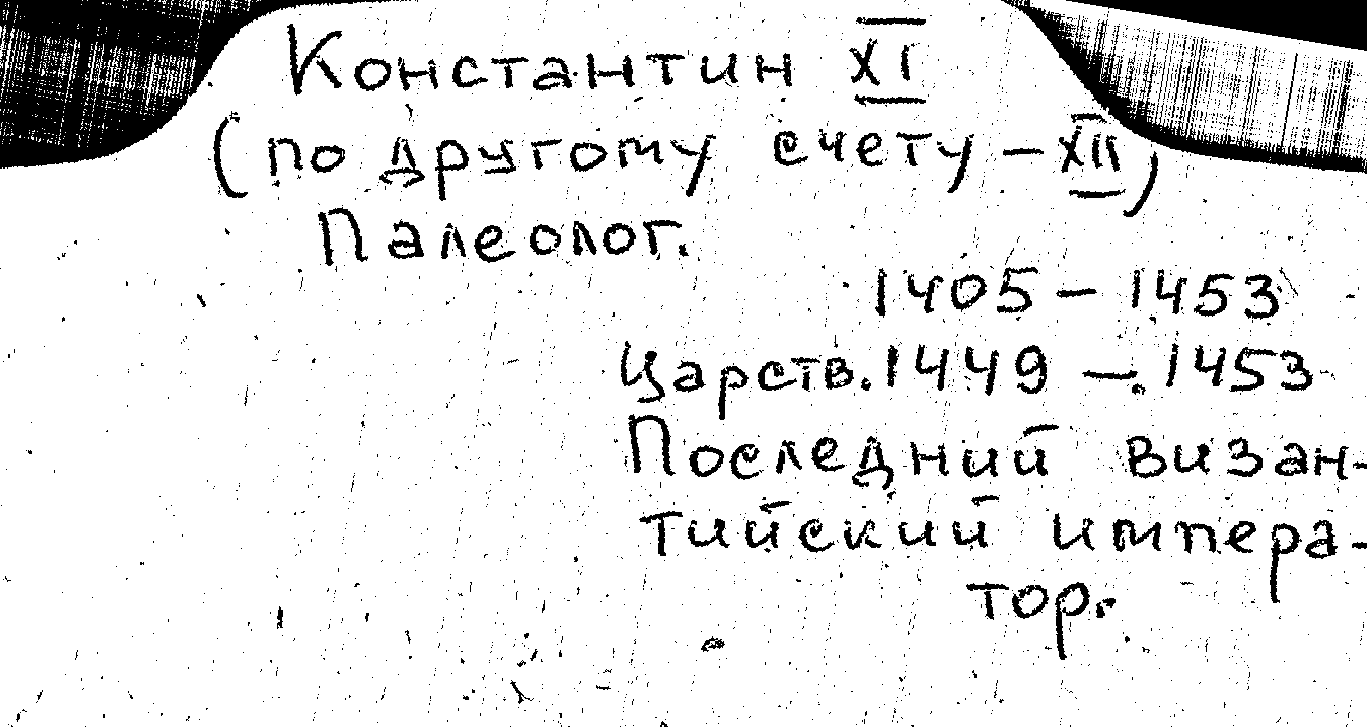 Константин XI
(по другому счету – XII)
Палеолог.
1405 – 1453
Царств. 1449 – 1453
Последний визан-
тийский импера-
тор.